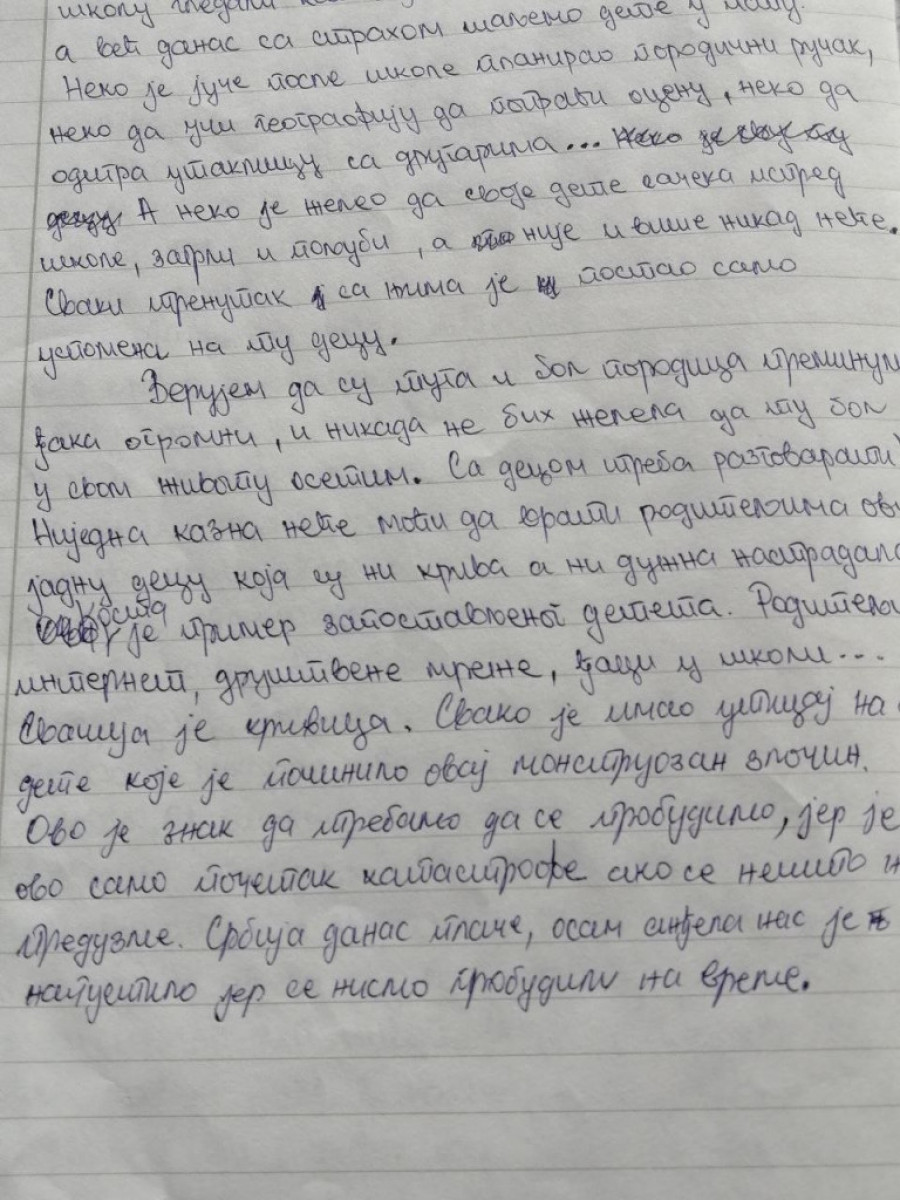 школу гледали
а већ данас са страхом шаљемо дете у
Неко је јуче после школе планирао породични ручак,
неко да учи географију да поправи оцену, неко да
одигра утакмицу са другарима...
А неко је желео да своје дете сачека испред
школе, загрли и пољуби, а није и више никад неће.
Сваки тренутак са њима је постао само
успомена на ту децу.
Верујем да су туга и бол породица преминули
ђака огромни, и никада не бих желела да ту бол
у свом животу осетим. Са децом треба разговарати
Ниједна казна неће моћи да врати родитељима ову
јадну децу која су ни крива а ни дужна настрадала
Коста је пример запостављеног детета. Родитељи
интернет, друштвене мреже, ђаци у школи...
Свачија је кривица. Свако је имао утицај на
дете које је починило овај монструозан злочин.
Ово је знак да требамо да се пробудимо, јер је
ово само почетак катастрофе ако се нешто н
предузме. Србија данас плаче, осам анђела нас је
напустило јер се нисмо пробудили на време.